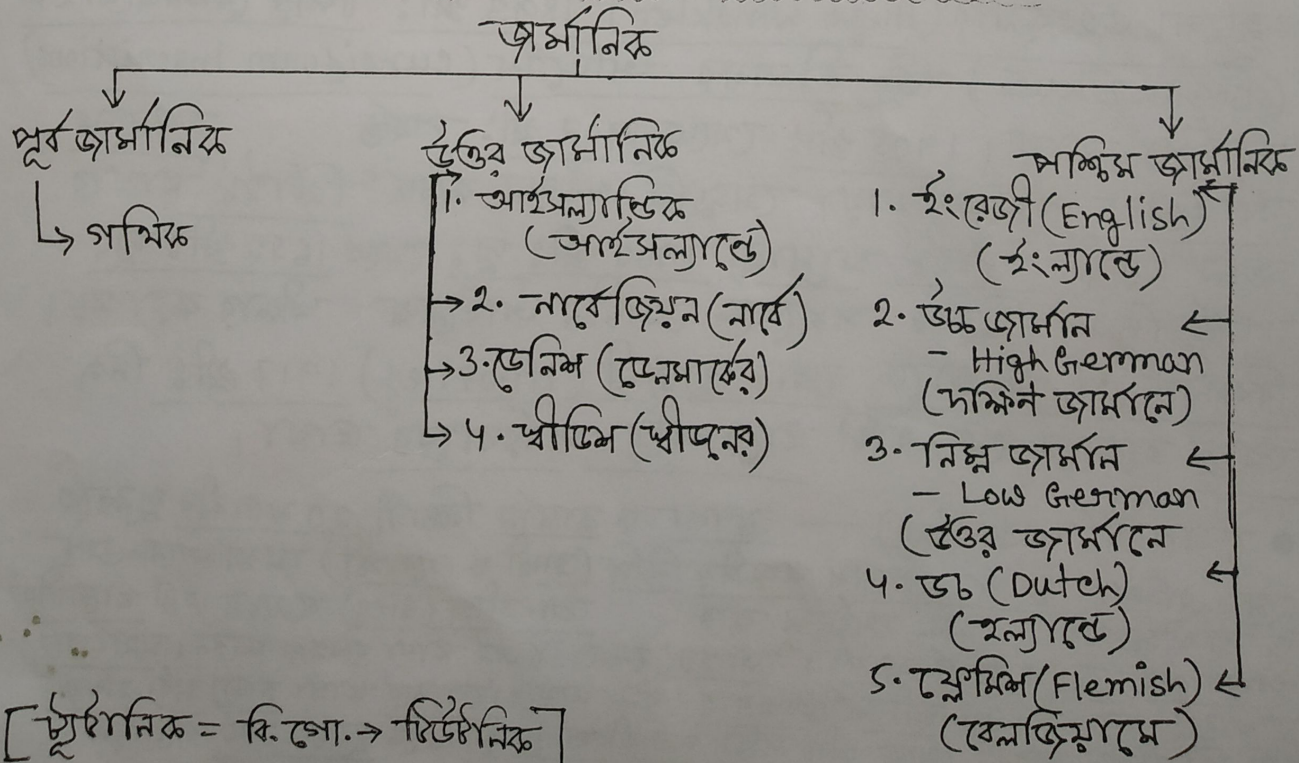 জার্মানিক
পূর্ব জার্মানিক
গথিক
উত্তর জার্মানিক
1. আইসল্যান্ডিক
(আইসল্যান্ডে)
2. নার্বেজিয়ন (নার্বে)
3. ডেনিশ (ডেনমার্কের)
4. স্বীডিশ (স্বীডনের)
পশ্চিম জার্মানিক
1. ইংরেজী (English)
(ইংল্যান্ডে)
2. উচ্চ জার্মান
- High German
(দক্ষিন জার্মানে)
3. নিম্ন জার্মান
- Low German
(উত্তর জার্মানে
4. ডচ (Dutch)
(হল্যান্ডে)
5. ফ্লেমিশ (Flemish)
(বেলজিয়ামে)
[ট্যূটানিক = কি. গো. → টিউটনিক]